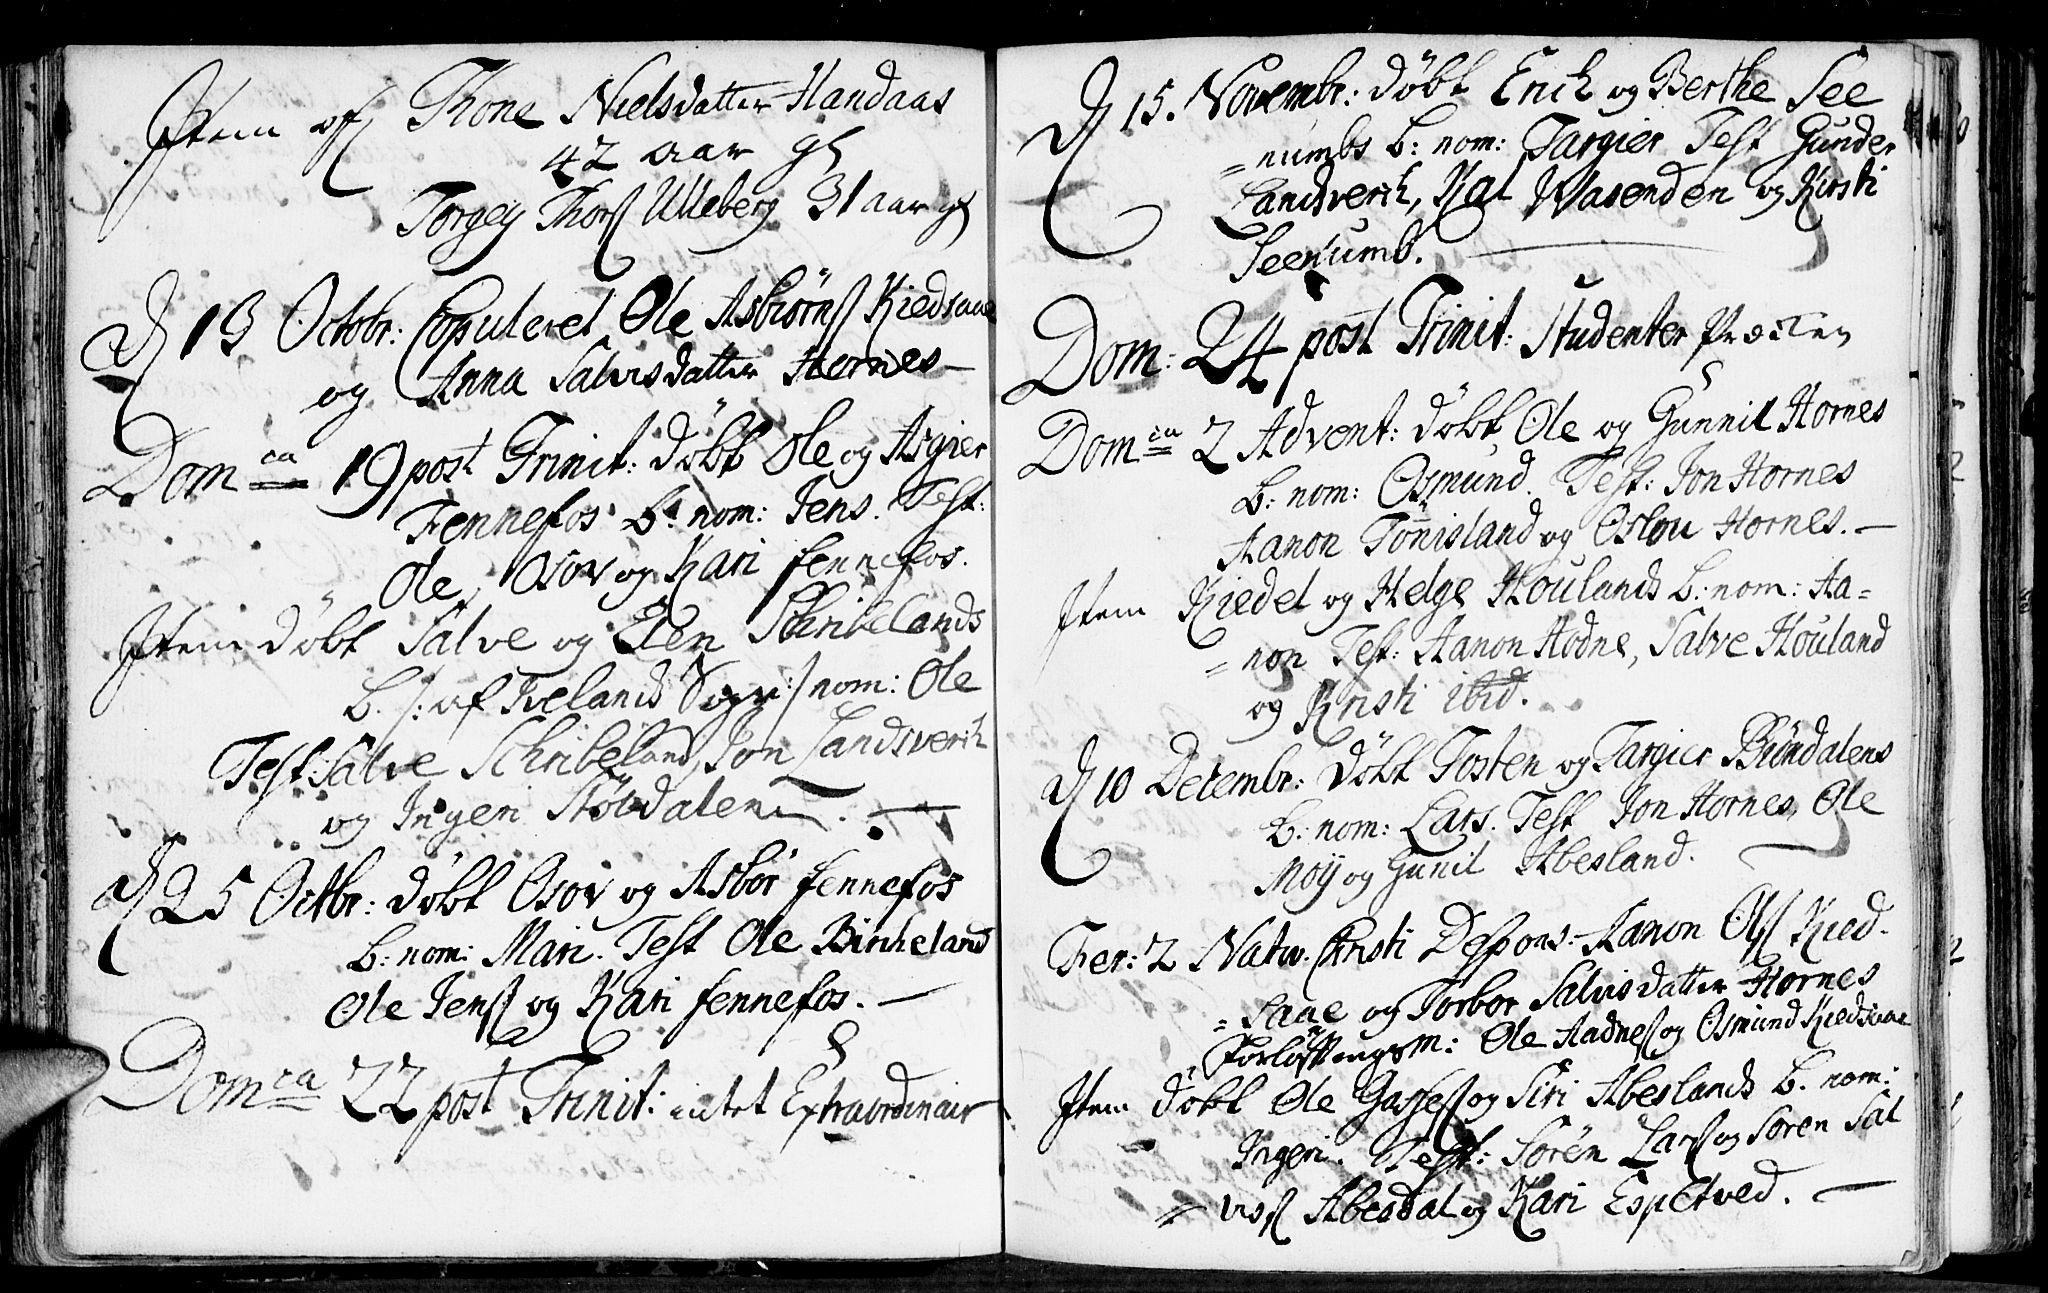 Item af Thone Nielsdatter Handaas
42 aar gl
Torgey Thorß Ulleberg 31 aar gl
D 13 Octobr: Copuleret Ole Asbiørnß Kiedsaae
og Anna Salvisdatter Hornes –
Dom ca 19 post Trinit: døbt Ole og Asgier
Fennefos b: nom: Jens. Test:
Ole, Osov og Kari fennefos.
Item døbt Salve og Elen Schribelands
B. /: af Ivelands Sogn :/ nom: Ole
Test: Salve Schribeland, Jon Landsverch
og Ingeri Støldalen. –
D 25 Octbr: døbt Osov og Asbor fennefos
B: nom: Mari. Test Ole Bircheland
Ole Jenß og Kari fennefos. –
Dom ca 22 post Trinit: intet Extraordinair
D 15. Novembr: døbt Erich og Berthe See
= numbs b: nom: Targier Test Gunder
Landsverch, Kal Wasenden og Kirsti
Seenumb.
Dom: 24 post Trinit: Studenter Præken
Dom ca 2 Advent: døbt Ole og Gunnil Hornes
b: nom: Osmund. Test: Jon Hornes
Aanon Tonisland og Oslou Hornes. –
Item Kiedel og Helge Houlands b: nom: Aa=
= non Test: Aanon Hodne, Salve Houland
og Kristi ibid.
D 10 Decembr: døbt Tosten og Targier Bøndalens
B: nom: Lars. Test Jon Hornes, Ole
Moÿ og Gunil Abesland.
Fer: 2 Nativ. Christi Despons: Aanon Olß Kied-
= saae og Torbor Salvisdatter Hornes
Forløftningsm: Ole Aadneß og Osmund Kiedsaae
Item døbt Ole Gasseß og Siri Abeslands b. nom:
Ingeri. Test: Søren Larß og Soren Sal
= visß Abesdal og Kari Espetved. –